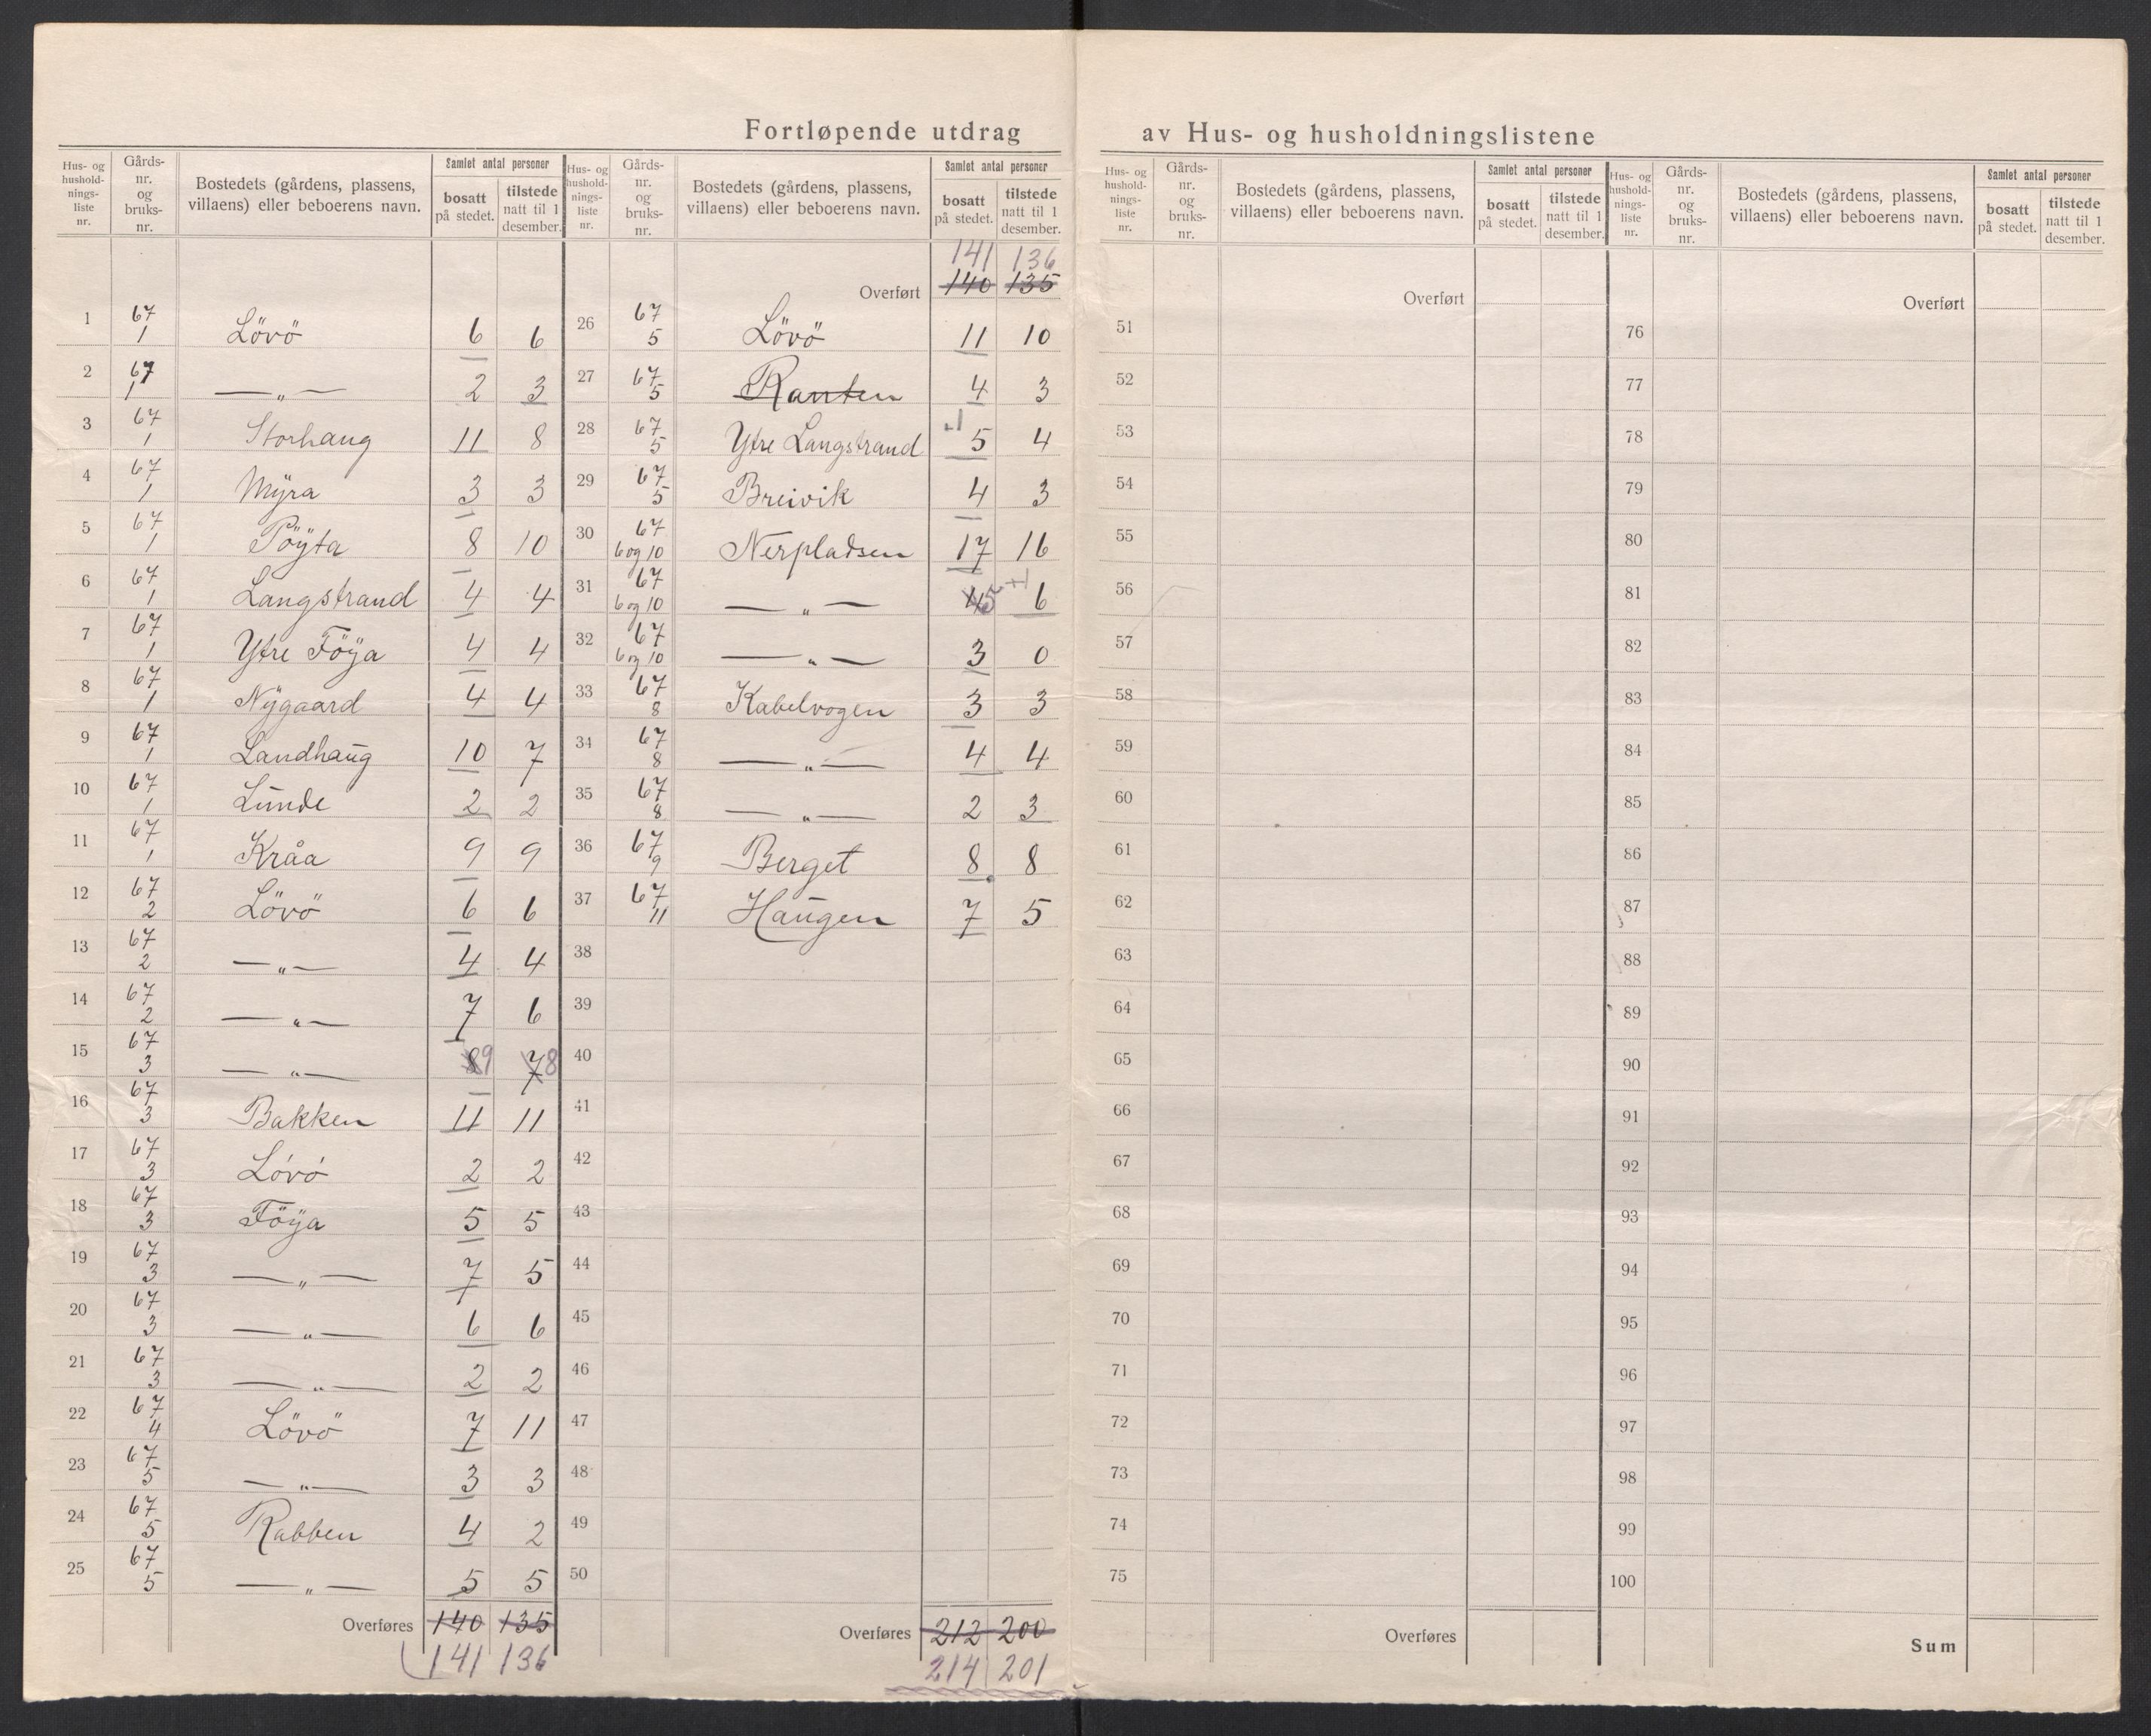 Fortløpende utdrag av Hus- og husholdningslistene
Hus- og hushold-nings-liste nr. Gårds-nr. og bruks-nr. Bostedets (gårdens, plassens, villaens) eller beboerens navn. Samlet antal personer bosatt på stedet. tilstede natt til 1 desember.
1 67 1 Lövö 6 6
2 67 1 —„— 2 3
3 67 1 Storhaug 11 8
4 67 1 Myra 3 3
5 67 1 Pöyta 8 10
6 67 1 Langstrand 4 4
7 67 1 Ytre Föya 4 4
8 67 1 Nygaard 4 4
9 67 1 Landhaug 10 7
10 67 1 Lunde 2 2
11 67 1 Kråa 9 9
12 67 2 Lövö 6 6
13 67 2 —„— 4 4
14 67 2 —„— 7 6
15 67 3 —„— 8 9 7 8
16 67 3 Bakken 11 11
17 67 3 Lóvó 2 2
18 67 3 Föya 5 5
19 67 3 —„— 7 5
20 67 3 —„— 6 6
21 67 3 —„— 2 2
22 67 4 Lövö 7 11
23 67 5 —„— 3 3
24 67 5 Rabben 4 2
25 67 5 —„— 5 5
Overføres 140 135
141 136
Hus- og hushold-nings-liste nr. Gårds-nr. og bruks-nr. Bostedets (gårdens, plassens, villaens) eller beboerens navn. Samlet antal personer bosatt på stedet. tilstede natt til 1 desember.
141 136
Overført 140 135
26 67 5 Lövö 11 10
27 67 5 Ranten 4 3
28 67 5 Ytre Langstrand 5 4
29 67 5 Breivik 4 3
30 67 6 og 10 Nerpladsen 17 16
31 67 6 og 10 —„— 4 5 +1 6
32 67 6 og 10 —„— 3 0
33 67 8 Kabelvogen 3 3
34 67 8 —„— 4 4
35 67 8 —„— 2 3
36 67 9 Berget 8 8
37 67 11 Haugen 7 5
38
39
40
41
42
43
44
45
46
47
48
49
50
Overføres 212 200
214 201
Hus- og hushold-nings-liste nr. Gårds-nr. og bruks-nr. Bostedets (gårdens, plassens, villaens) eller beboerens navn. Samlet antal personer bosatt på stedet. tilstede natt til 1 desember.
Overført
51
52
53
54
55
56
57
58
59
60
61
62
63
64
65
66
67
68
69
70
71
72
73
74
75
Overføres
Hus- og hushold-nings-liste nr. Gårds-nr. og bruks-nr. Bostedets (gårdens, plassens, villaens) eller beboerens navn. Samlet antal personer bosatt på stedet. tilstede natt til 1 desember.
Overført
76
77
78
79
80
81
82
83
84
85
86
87
88
89
90
91
92
93
94
95
96
97
98
99
100
Sum